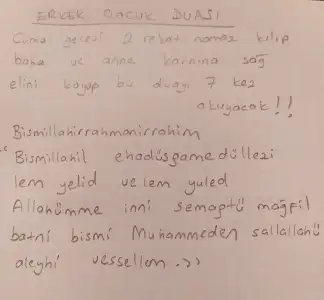 ERKEK ÇOCUK DUASI
Cuma gecesi 2 rekat namaz kılıp
baba ve anne karnına sağ
elini koyup bu duayı 7 kez
okuyacak!!
Bismillahirrahmanirrahim
Bismillahil ehadüsgamedüllezi
lem yelid ve lem yuled
Allahümme inni semaptü mağfil
batni bismi Muhammeden sallallahü
aleyhi vessellem